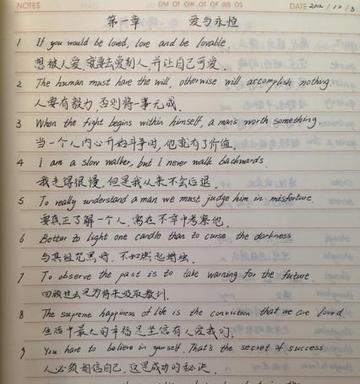 DATE 2012/12/3
第一章 爱与永恒
1 If you would be loved, love and be lovable.
想被人爱,就要去爱别人,并让自己可爱.
2 The human must have the will, otherwise will accomplish nothing.
人要有毅力,否则将一事无成.
3 When the fight begins within himself, a man's worth something.
当一个人内心开始斗争时,他就有了价值.
4 I am a slow walker, but I never walk backwards.
我走得很慢,但是我从来不会后退.
5 To really understand a man we must judge him in misfortune.
要真正了解一个人,需在不幸中考察他.
6 Better to light one candle than to curse the darkness.
与其诅咒黑暗,不如燃起蜡烛.
7 To observe the past is to take warning for the future.
回顾过去是为将来吸取教训.
8 The supreme happiness of life is the conviction that we are loved.
生活中最大的幸福是坚信有人爱我们.
9 You have to believe in yourself. That's the secret of success.
人必须相信自己,这是成功的秘诀.